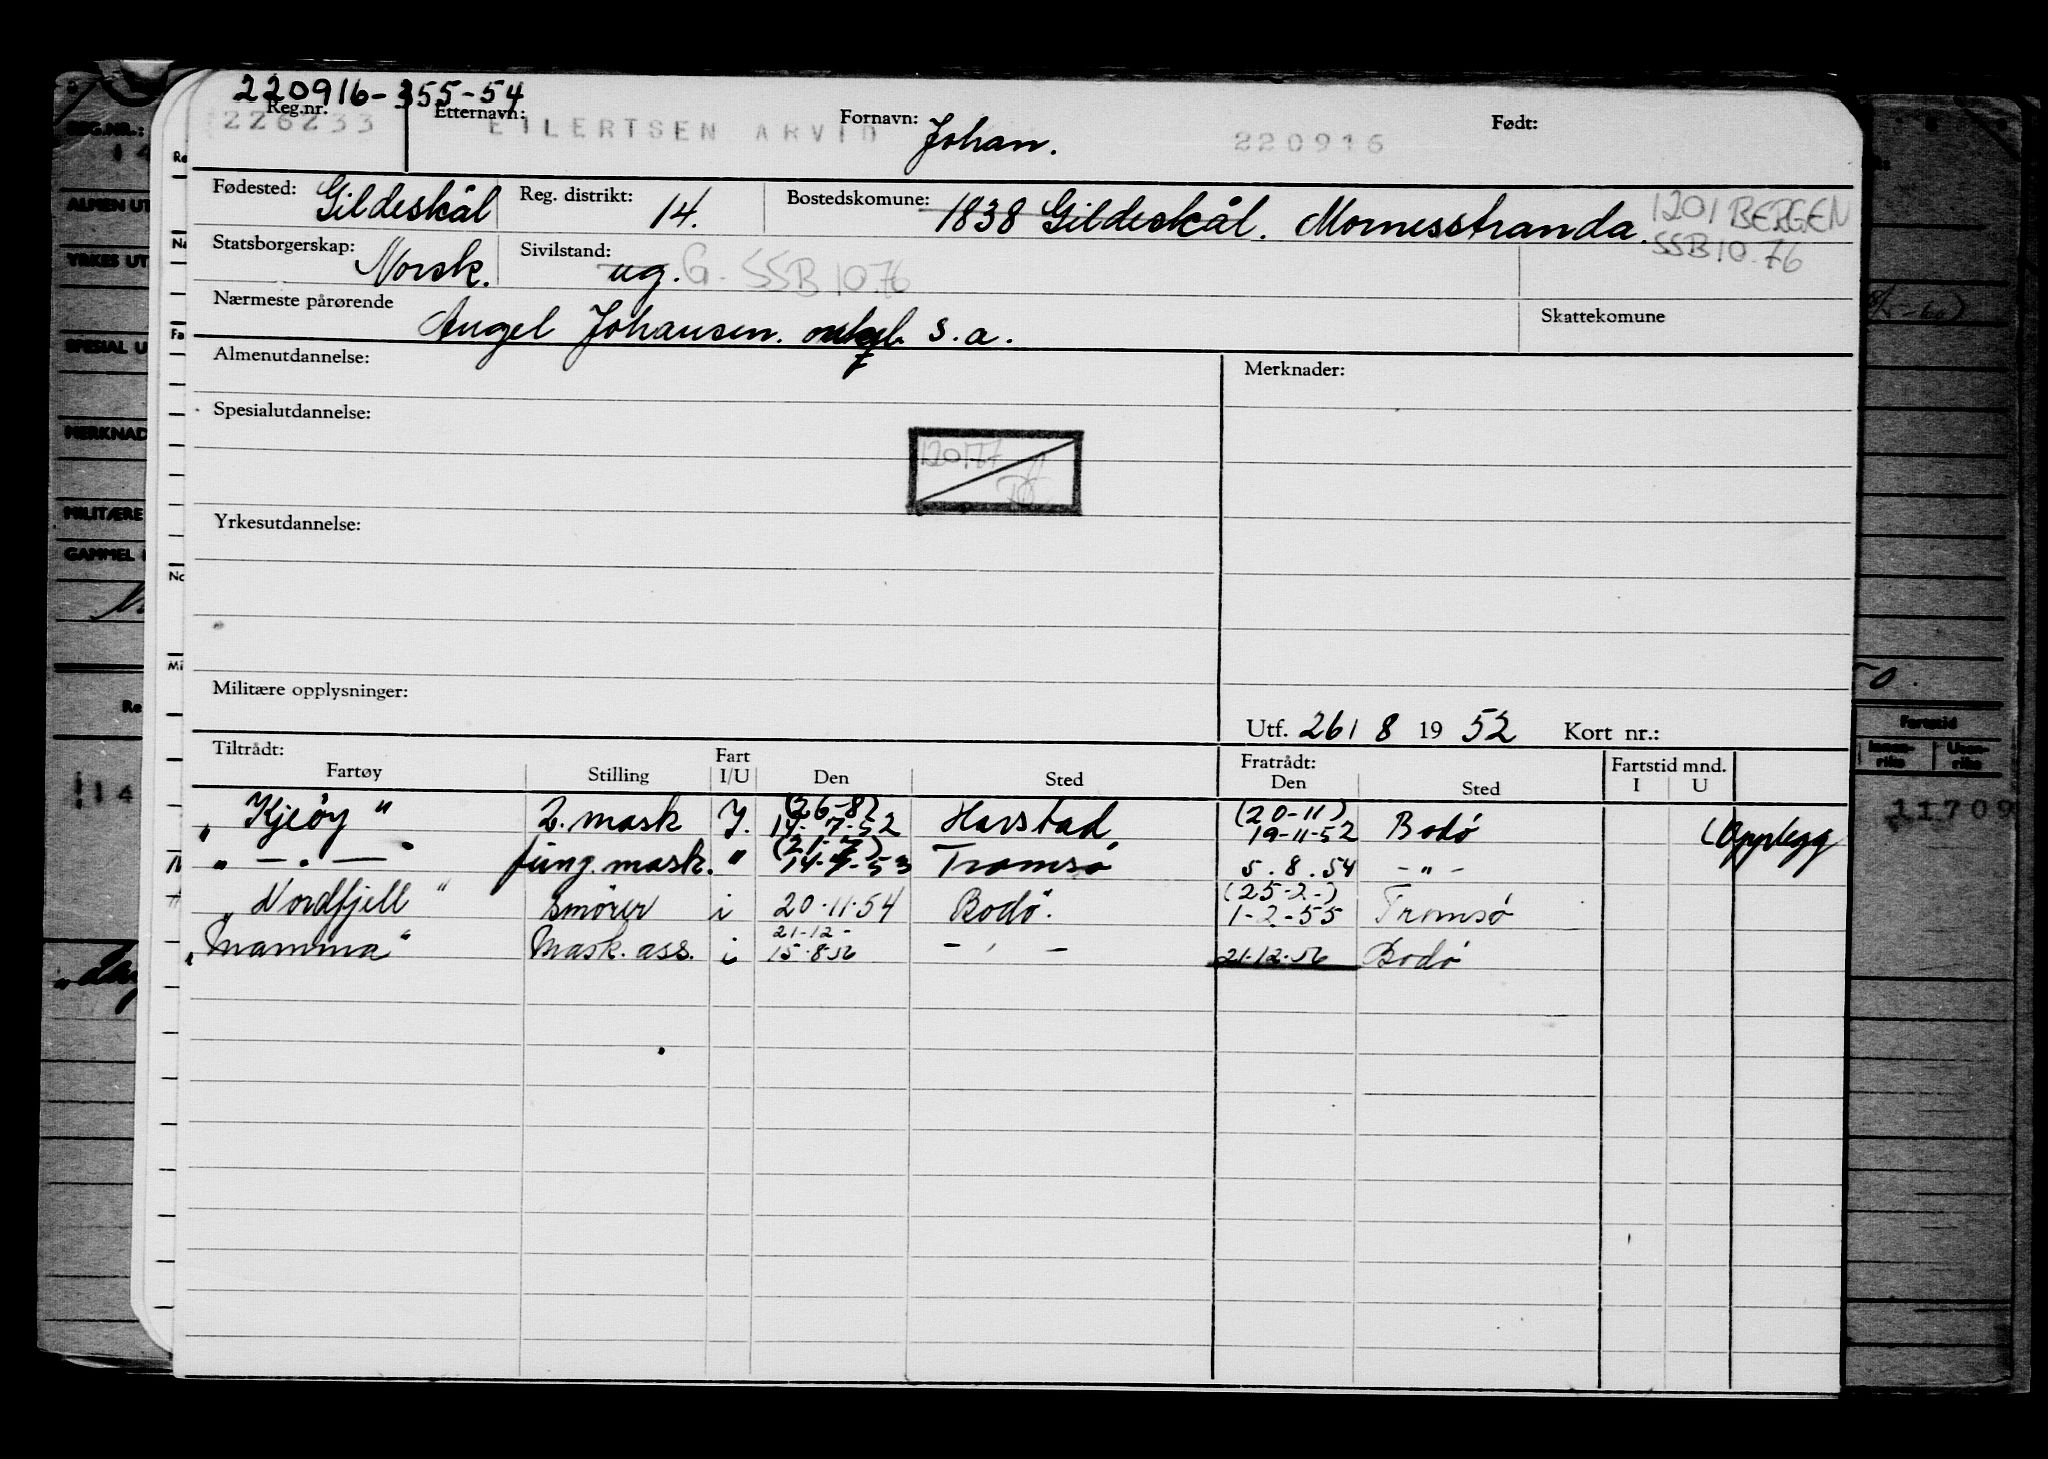 220916-355-54
Reg.nr. Etternavn: Fornavn: Født:
226233 EILERTSEN ARVID Johan. 220916
Fødested: Gildeskål Reg. distrikt: 14. Bostedskomune: 1838 Gildeskål. Mornesstranda. 1201 BERGEN
Statsborgerskap: Norsk. Sivilstand: ug. G. SSB 10.76 SSB 10.76
Nærmeste pårørende Angel Johansen. s.a. Skattekomune
Almenutdannelse: Merknader:
Spesialutdannelse:
Yrkesutdannelse:
Militære opplysninger:
Utf. 26/ 8 19 52 Kort nr.:
Tiltrådt: Fart Fratrådt: Fartstid mnd.
Fartøy Stilling I/U Den Sted Den Sted I U
(26-8) (20-11)
"Kjeøy" 2. mask I. 14-7-52 Harstad 19-11-52 Bodø (Opplegg
(21-7)
" — . — " fung. mask. " 14-7-53 Tromsø 5.8.54 - " -
(25-2-)
"Nordfjell" Smører i 20.11.54 Bodø. 1-2-55 Tromsø
21-12-
"Mamma" Mask. ass. i 15.8.56 - ' - 21.12.56 Bodø
REG.NR.:
ALMEN UT
YRKES UT
SPESIAL U
MERKNAD
MILITÆRE
GAMMEL
Fartstid
Innen-riks Uten-riks
11709